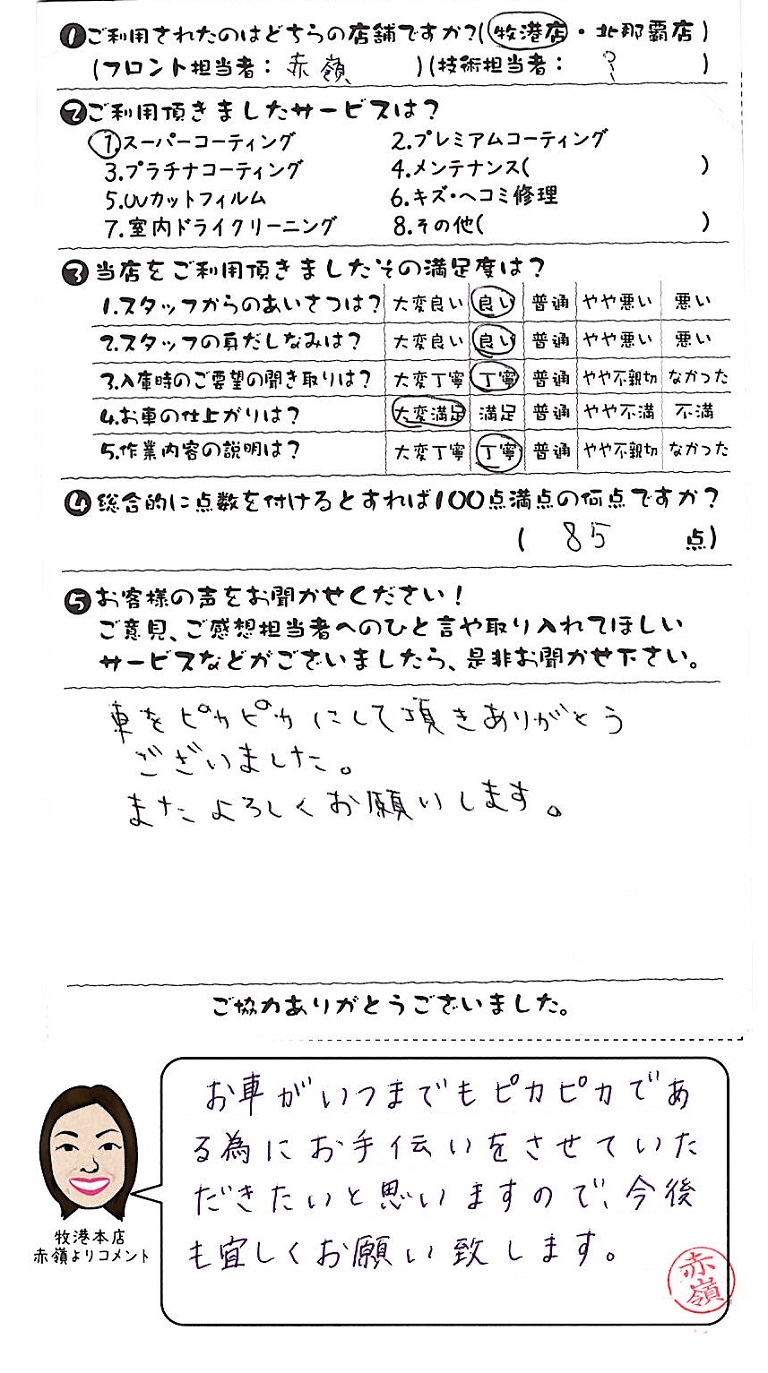 ❶ご利用されたのはどちらの店舗ですか?(牧港店・北那覇店)
(フロント担当者: 赤嶺 )(技術担当者: ? )
❷ご利用頂きましたサービスは?
1.スーパーコーティング 2.プレミアムコーティング
3.プラチナコーティング 4.メンテナンス( )
5.UVカットフィルム 6.キズ・ヘコミ修理
7.室内ドライクリーニング 8.その他( )
❸当店をご利用頂きましたその満足度は?
1.スタッフからのあいさつは? 大変良い 良い 普通 やや悪い 悪い
2.スタッフの身だしなみは? 大変良い 良い 普通 やや悪い 悪い
3.入庫時のご要望の聞き取りは? 大変丁寧 丁寧 普通 やや不親切 なかった
4.お車の仕上がりは? 大変満足 満足 普通 やや不満 不満
5.作業内容の説明は? 大変丁寧 丁寧 普通 やや不親切 なかった
❹総合的に点数を付けるとすれば100点満点の何点ですか?
( 85 点)
❺お客様の声をお聞かせください!
ご意見、ご感想担当者へのひと言や取り入れてほしい
サービスなどがございましたら、是非お聞かせ下さい。
車をピカピカにして頂きありがとう
ございました。
またよろしくお願いします。
ご協力ありがとうございました。
お車がいつまでもピカピカであ
る為にお手伝いをさせていた
だきたいと思いますので、今後
も宜しくお願い致します。
牧港本店
赤嶺よりコメント
赤嶺